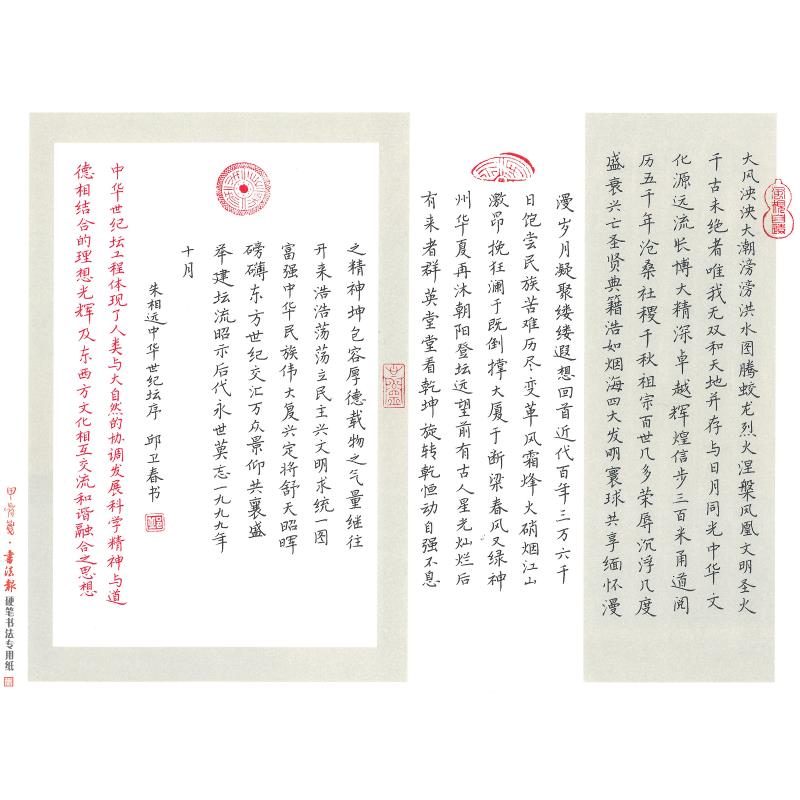 大风泱泱大潮滂滂洪水图腾蛟龙烈火涅槃凤凰文明圣火
千古未绝者唯我无双和天地并存与日月同光中华文
化源远流长博大精深卓越辉煌信步三百米甬道阅
历五千年沧桑社稷千秋祖宗百世几多荣辱沉浮几度
盛衰兴亡圣贤典籍浩如烟海四大发明寰球共享缅怀漫
漫岁月凝聚缕缕遐想回首近代百年三万六千
日饱尝民族苦难历尽变革风霜烽火硝烟江山
激昂挽狂澜于既倒撑大厦于断梁春风又绿神
州华夏再沐朝阳登坛远望前有古人星光灿烂后
有来者群英堂堂看乾坤旋转乾恒动自强不息
之精神坤包容厚德载物之气量继往
开来浩浩荡荡立民主兴文明求统一图
富强中华民族伟大复兴定将舒天昭晖
磅礴东方世纪交汇万众景仰共襄盛
举建坛流昭示后代永世莫忘一九九九年
十月
朱相远中华世纪坛序 邱卫春书
中华世纪坛工程体现了人类与大自然的协调发展科学精神与道
德相结合的理想光辉及东西方文化相互交流和谐融合之思想
甲骨笺·书法报硬笔书法专用纸